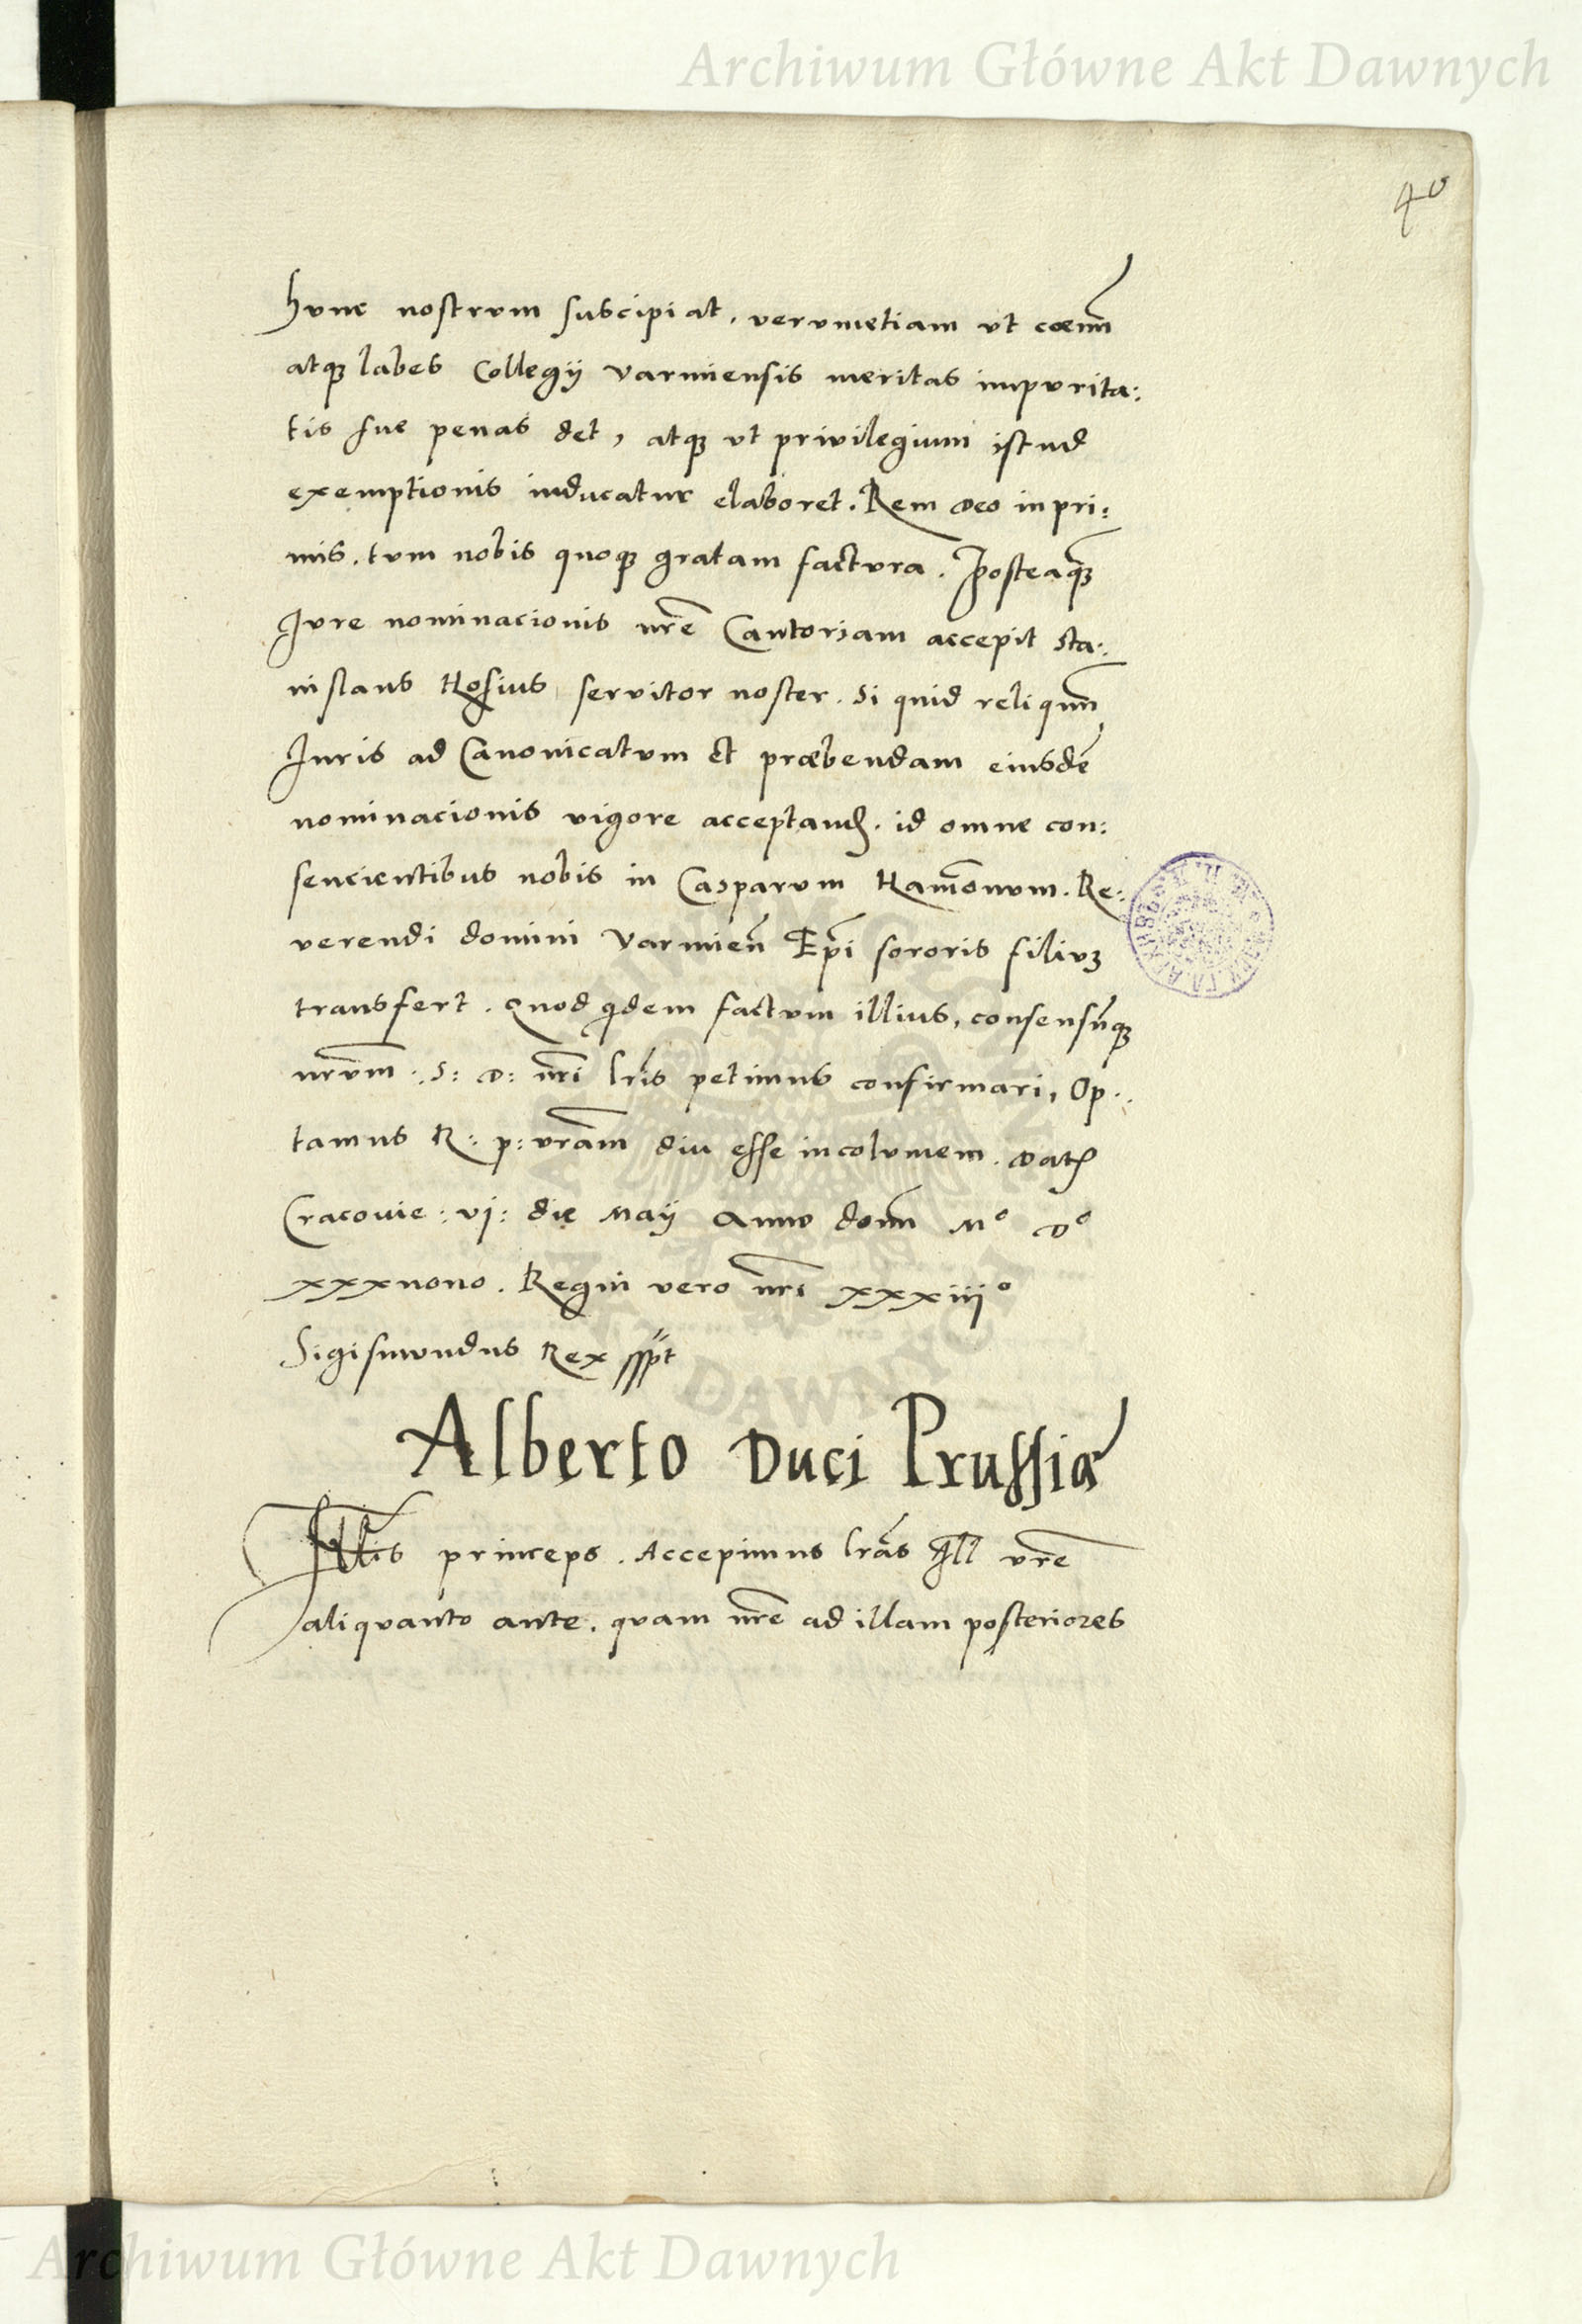 Archiwum Główne Akt Dawnych
40
hunc nostrum suscipiat, verumetiam ut cœnũ
atq̃ labes Collegij varmiensis meritas impurita:
tis sue penas det, atq̃ ut privilegium istud
exemptionis inducatur elaboret. Rem deo inpri:
mis. tum nobis quoq̃ gratam factura. Posteaq̃
Iure nominacionis nr̃e Cantoriam accepit Sta:
nislaus Hosius servitor noster. Si quid reliquũ
Iuris ad Canonicatum et præbendam eiusdẽ
nominacionis vigore acceptand. id omne con:
sencientibus nobis in Casparum Ham̃onum. Re:
verendi domini Varmieñ Ep̃i sororis filiuʒ
transfert. Quod qidem factum illius, consensũq̃
nr̃um. S: D: nr̃i lr̃is petimus confirmari, Op:
tamus R: p: vr̃am diu esse incolumem. Dat
Cracovie: vj: die Maij Anno domĩ Mº Dº
xxxnono. Regni vero nr̃i xxxiijº
Sigismundus Rex sspt
Alberto Duci Prussiæ
Illis princeps. Accepimus lr̃as Ill vr̃e
aliquanto ante. quam nr̃e ad illam posteriores
DAWNYCH
Archiwum Główne Akt Dawnych